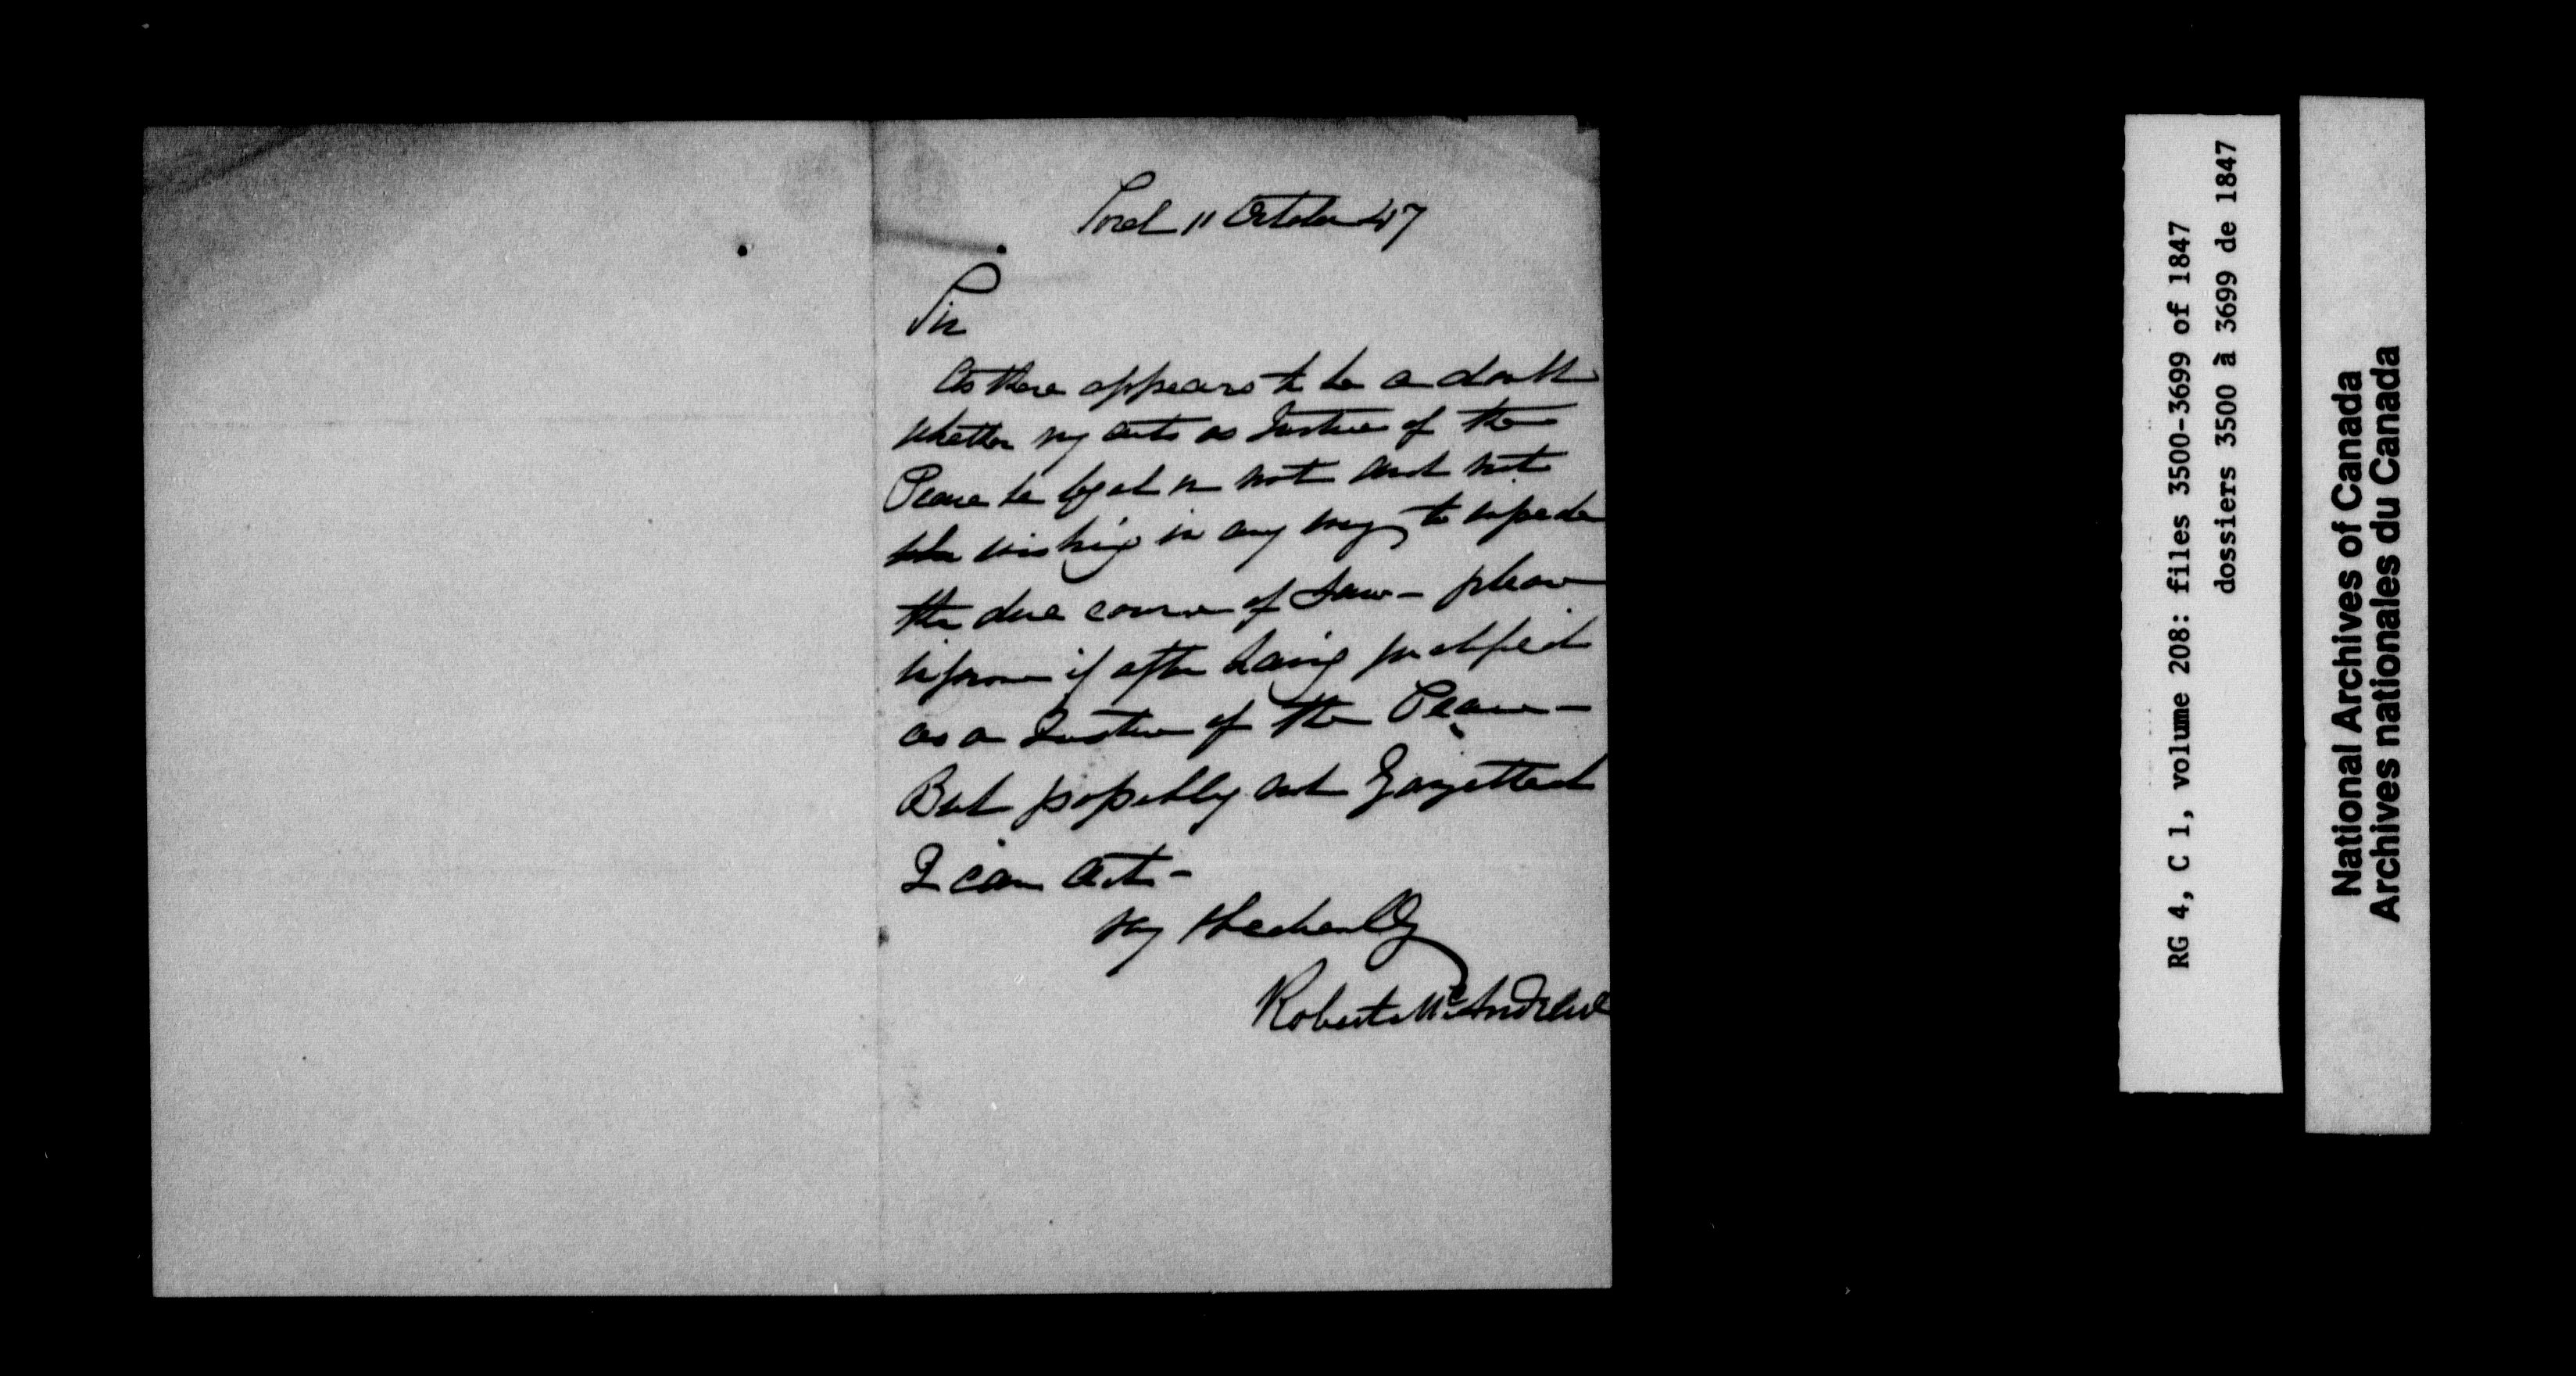 Sorel 11 October 47
Sir
As there appears to be a doubt
whether my acts as Justice of the
Peace be legal or not and not
wishing in any way to impede
the due course of Law - please
inform if after having qualified
as a Justice of the Peace -
But possibly not Gazetted
I can act -
Robert McAndrew
RG 4, C 1, volume 208: files 3500-3699 of 1847
dossiers 3500 à 3699 de 1847
National Archives of Canada
Archives nationales du Canada